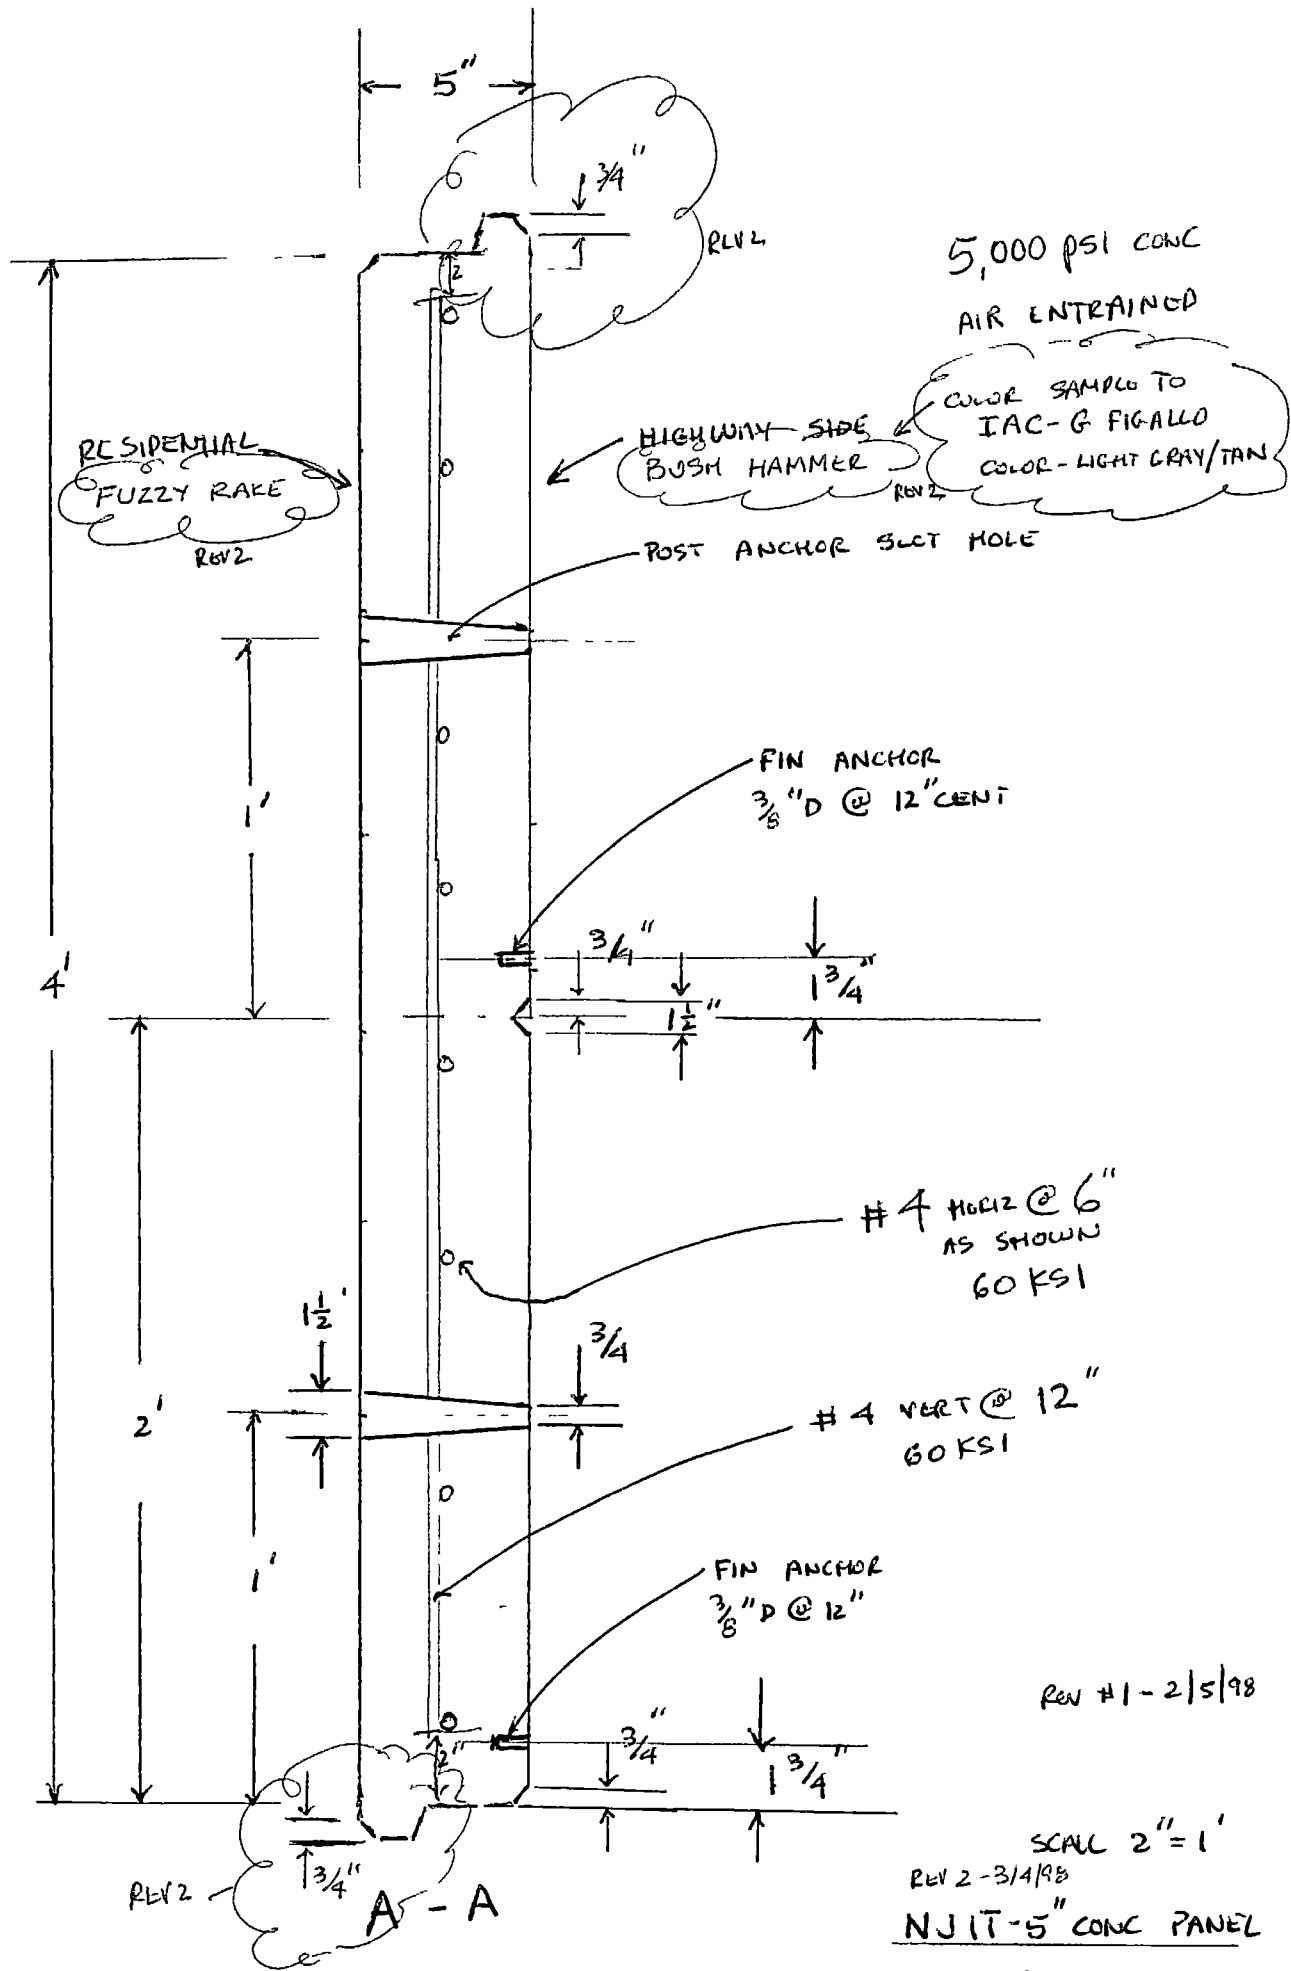 5"
3/4"
REV2
2
5,000 PSI CONC
AIR ENTRAINED
COLOR SAMPLE TO
IAC-G FIGALLO
COLOR-LIGHT GRAY/TAN
RESIDENTIAL
FUZZY RAKE
REV2
HIGHWAY SIDE
BUSH HAMMER
REV2
POST ANCHOR SLOT HOLE
1'
FIN ANCHOR
3/8"D @ 12" CENT
4'
3/4"
1 1/2"
1 3/4"
#4 HORIZ @ 6"
AS SHOWN
60 KSI
1 1/2'
3/4
2'
#4 VERT @ 12"
60 KSI
1'
FIN ANCHOR
3/8"D @ 12"
REV #1 - 2/5/98
2"
3/4"
1 3/4"
3/4"
REV2
A - A
SCALE 2"=1'
REV 2 - 3/4/98
NJIT-5" CONC PANEL